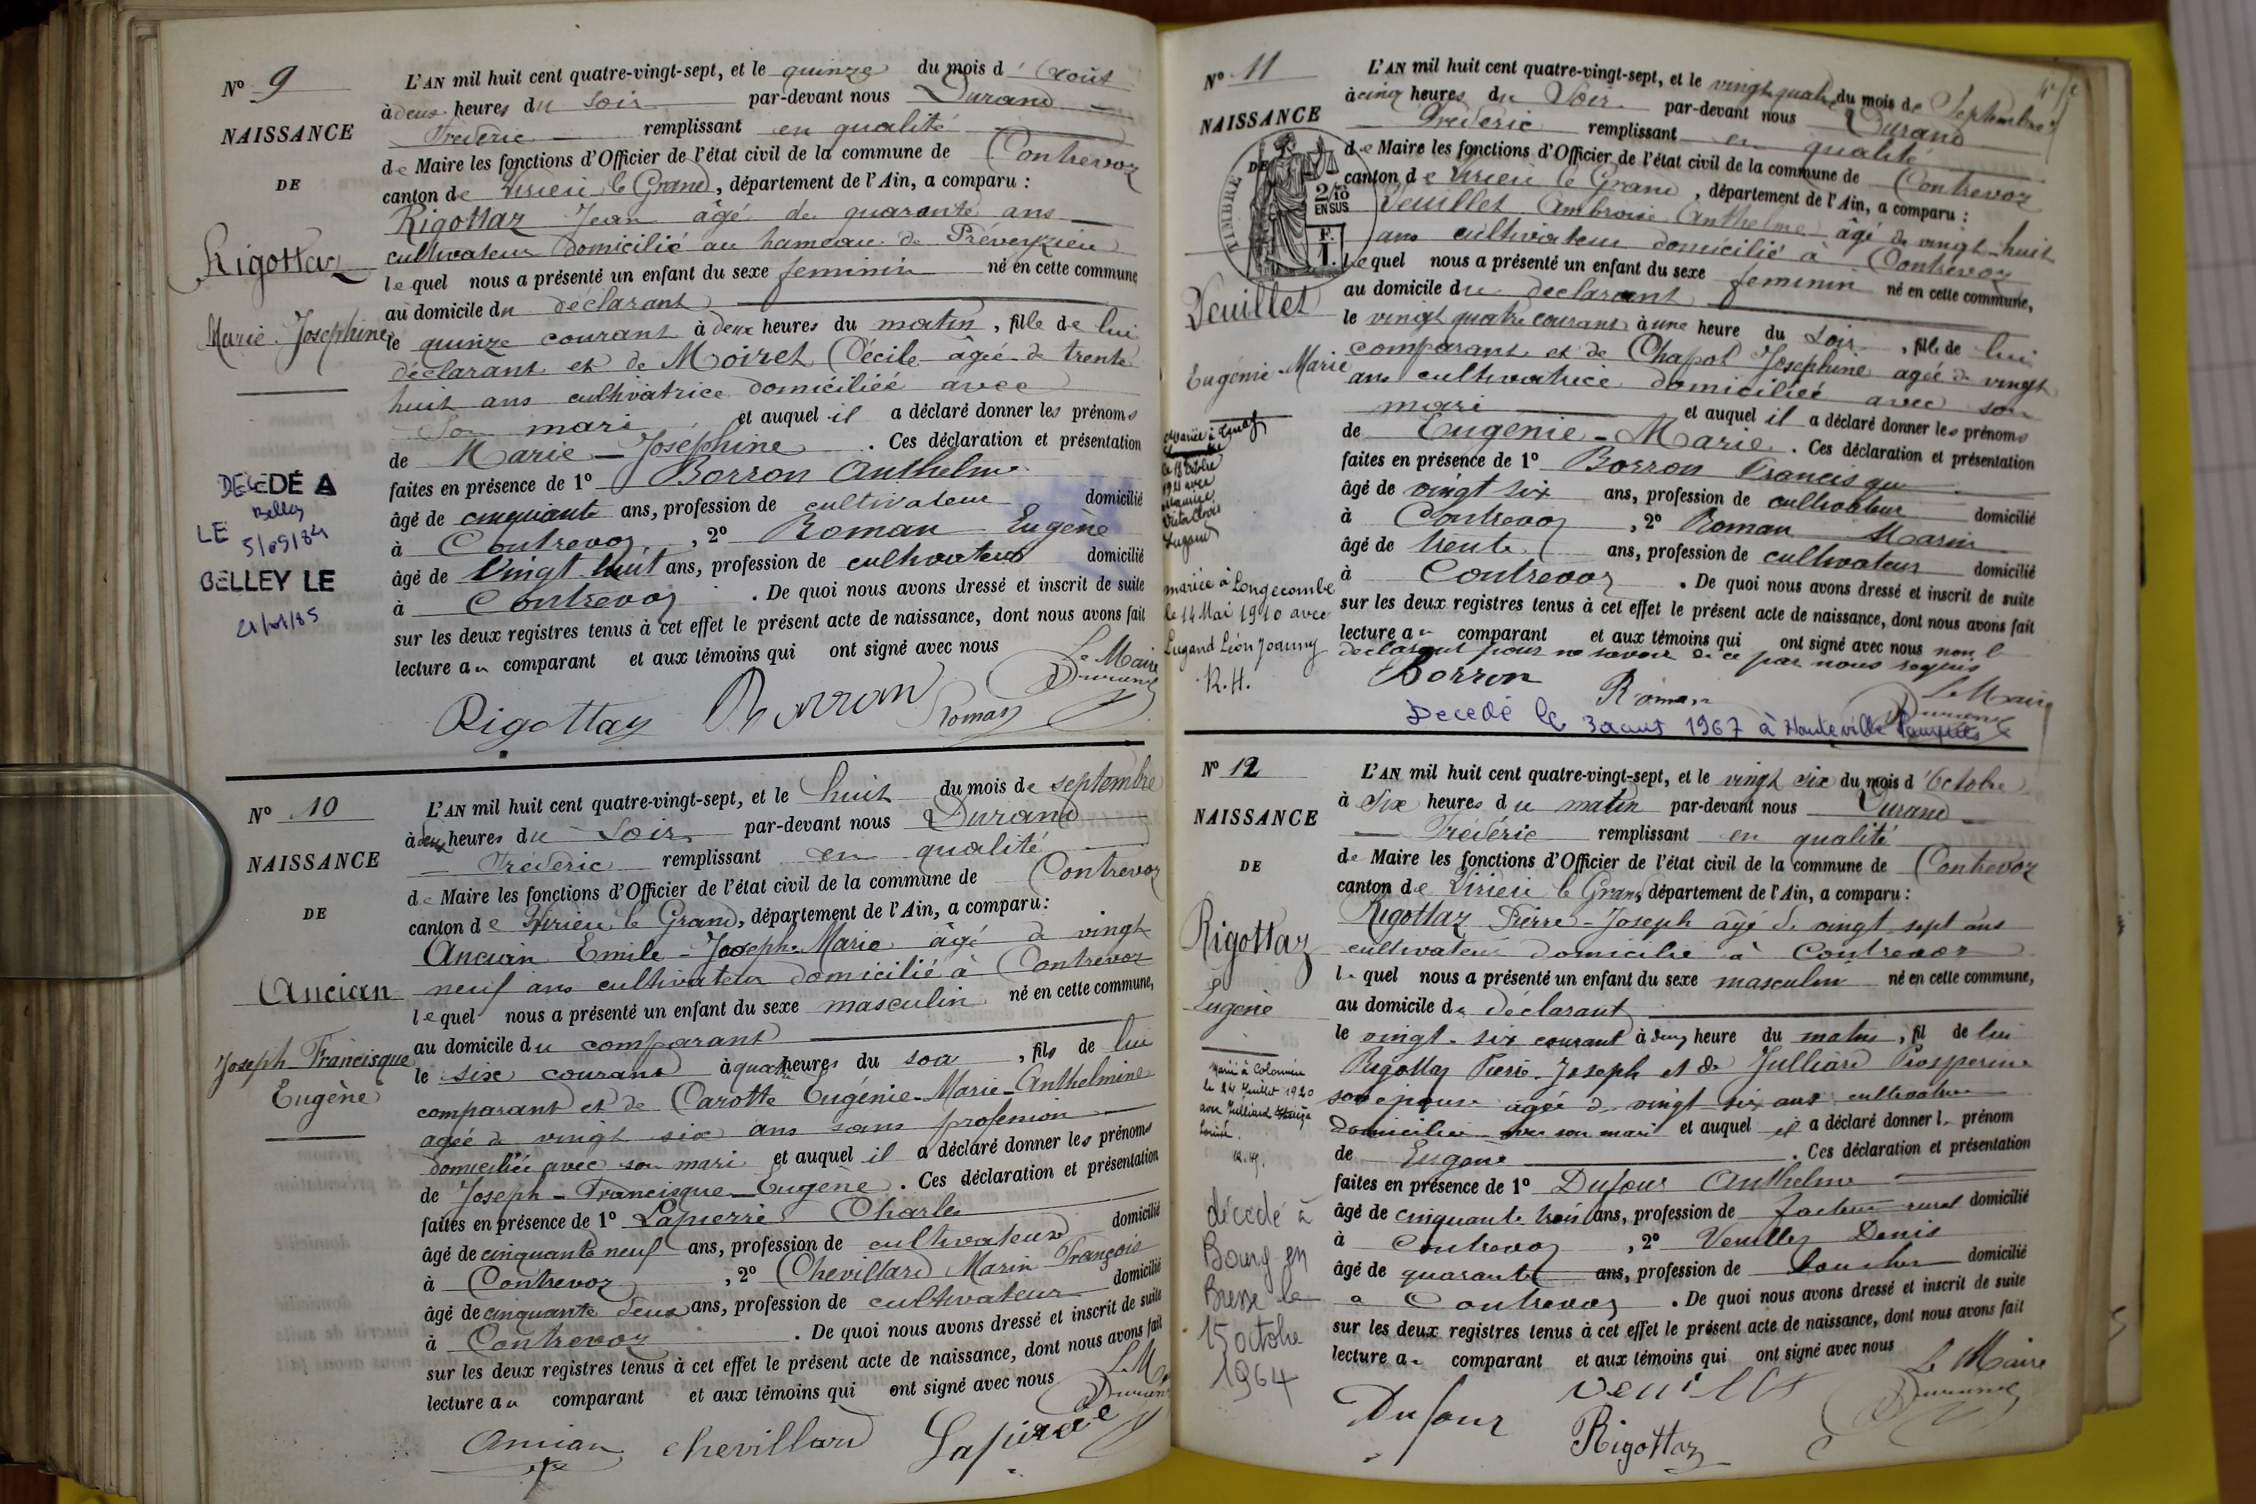 Nº 9
NAISSANCE
DE
Rigottaz
Marie-Joséphine
DECEDÉ A
Belley
LE 5/09/84
BELLEY LE
L'AN mil huit cent quatre-vingt-sept, et le quinze du mois d'Août
à deux heures du soir par-devant nous Durand
Frédéric remplissant en qualité
de Maire les fonctions d'Officier de l'état civil de la commune de Contrevoz
canton de Virieu le Grand, département de l'Ain, a comparu :
Rigottaz Jean âgé de quarante ans
cultivateur domicilié au hameau de Préveyzieu
lequel nous a présenté un enfant du sexe feminin né en cette commune,
au domicile du déclarant
le quinze courant à deux heures du matin, fille de lui
déclarant et de Moiret Cécile âgée de trente
huit ans cultivatrice domiciliée avec
son mari et auquel il a déclaré donner les prénoms
de Marie-Joséphine. Ces déclaration et présentation
faites en présence de 1º Borron Anthelme
âgé de cinquante ans, profession de cultivateur domicilié
à Contrevoz, 2º Roman Eugène
âgé de Vingt huit ans, profession de cultivateur domicilié
à Contrevoz. De quoi nous avons dressé et inscrit de suite
sur les deux registres tenus à cet effet le présent acte de naissance, dont nous avons fait
lecture au comparant et aux témoins qui ont signé avec nous
Le Maire
Durand
Rigottaz Borron Roman
Nº 10
NAISSANCE
DE
Ancian
Joseph Francisque
Eugène
L'AN mil huit cent quatre-vingt-sept, et le huit du mois de septembre
à deux heures du soir par-devant nous Durand
Frédéric remplissant en qualité
de Maire les fonctions d'Officier de l'état civil de la commune de Contrevoz
canton de Virieu le Grand, département de l'Ain, a comparu :
Ancian Emile-Joseph-Marie âgé de vingt
neuf ans cultivateur domicilié à Contrevoz
lequel nous a présenté un enfant du sexe masculin né en cette commune,
au domicile du comparant
le six courant à quatre heures du soir, fils de lui
comparant et de Carotte Eugénie-Marie-Anthelmine
agée de vingt six ans sans profession
domiciliée avec son mari et auquel il a déclaré donner les prénoms
de Joseph-Francisque-Eugène. Ces déclaration et présentation
faites en présence de 1º Lapierre Charles
âgé de cinquante neuf ans, profession de cultivateur domicilié
à Contrevoz, 2º Chevillard Marin François
âgé de cinquante deux ans, profession de cultivateur domicilié
à Contrevoz. De quoi nous avons dressé et inscrit de suite
sur les deux registres tenus à cet effet le présent acte de naissance, dont nous avons fait
lecture au comparant et aux témoins qui ont signé avec nous
Le M
Durand
Ancian chevillard Lapierre
Nº 11
NAISSANCE
DE
TIMBRE
2/10
EN SUS
Veuillet
Eugénie-Marie
le 18 octobre
mariée à Longecombe
le 14 Mai 1910 avec
Lugand Léon Joanny
R.H.
L'AN mil huit cent quatre-vingt-sept, et le vingt quatre du mois de Septembre
à cinq heures du Soir par-devant nous Durand
Frédéric remplissant en qualité
de Maire les fonctions d'Officier de l'état civil de la commune de Contrevoz
canton de Virieu le Grand, département de l'Ain, a comparu :
Veuillet Ambroise Anthelme âgé de vingt-huit
ans cultivateur domicilié à Contrevoz
lequel nous a présenté un enfant du sexe feminin né en cette commune,
au domicile du déclarant
le vingt quatre courant à une heure du soir, fille de lui
comparant et de Chapot Joséphine agée de vingt
ans cultivatrice domiciliée avec son
mari et auquel il a déclaré donner les prénoms
de Eugénie-Marie. Ces déclaration et présentation
faites en présence de 1º Borron Francisque
âgé de vingt six ans, profession de cultivateur domicilié
à Contrevoz, 2º Roman Marin
âgé de trente ans, profession de cultivateur domicilié
à Contrevoz. De quoi nous avons dressé et inscrit de suite
sur les deux registres tenus à cet effet le présent acte de naissance, dont nous avons fait
lecture au comparant et aux témoins qui ont signé avec nous non le
déclarant pour ne savoir de ce par nous requis
Borron Roman Le Maire
Durand
Decedé le 3 aout 1967 à Hauteville Lompnes
Nº 12
NAISSANCE
DE
Rigottaz
Eugène
Marié à Colomieu
le 24 Juillet 1920
avec Julliard
R.H.
décédé à
Bourg en
Bresse le
15 octobre
1964
L'AN mil huit cent quatre-vingt-sept, et le vingt six du mois d'Octobre
à Six heures du matin par-devant nous Durand
Frédéric remplissant en qualité
de Maire les fonctions d'Officier de l'état civil de la commune de Contrevoz
canton de Virieu le Grand, département de l'Ain, a comparu :
Rigottaz Pierre-Joseph âgé de vingt sept ans
cultivateur domicilié à Contrevoz
lequel nous a présenté un enfant du sexe masculin né en cette commune,
au domicile du déclarant
le vingt-six courant à deux heure du matin, fil de lui
Rigottaz Pierre-Joseph et de Julliard Prosperine
son épouse agée de vingt six ans cultivatrice
domiciliée avec son mari et auquel il a déclaré donner l prénom
de Eugène. Ces déclaration et présentation
faites en présence de 1º Dufour Anthelme
âgé de cinquante trois ans, profession de facteur rural domicilié
à Contrevoz, 2º Veuillet Denis
âgé de quarante ans, profession de boucher domicilié
à Contrevoz. De quoi nous avons dressé et inscrit de suite
sur les deux registres tenus à cet effet le présent acte de naissance, dont nous avons fait
lecture au comparant et aux témoins qui ont signé avec nous
Le Maire
Dufour Veuillet Durand
Rigottaz